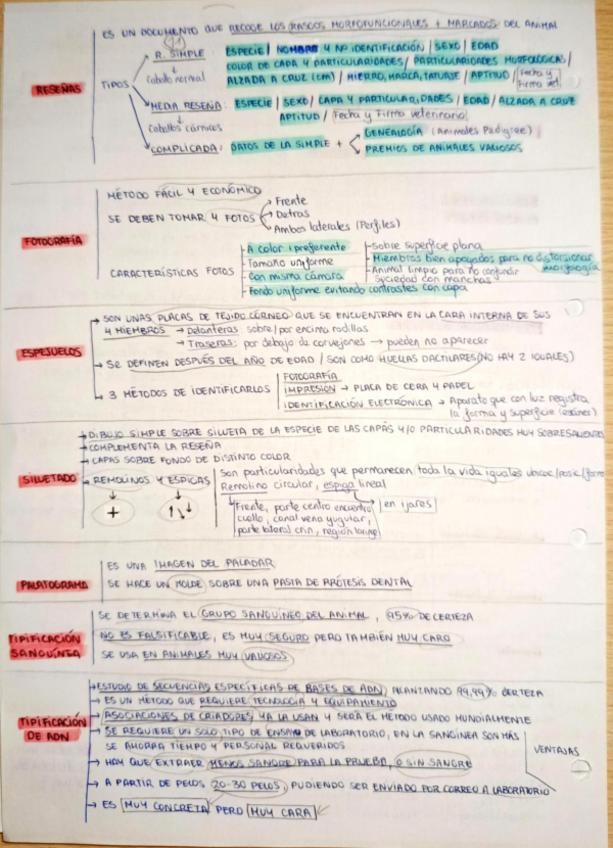 ES UN DOCUMENTO QUE RECOGE LOS RASGOS MORFOFUNCIONALES + MARCADOS DEL ANIMAL
RESEÑAS
TIPOS
R. SIMPLE
caballo normal
ESPECIE / NOMBRE Y Nº IDENTIFICACIÓN / SEXO / EDAD
COLOR DE CAPA Y PARTICULARIDADES / PARTICULARIDADES MORFOLÓGICAS /
ALZADA A CRUZ (cm) / HIERRO, MARCA, TATUAJE / APTITUD / Fecha y Firma vet.
MEDIA RESEÑA: ESPECIE / SEXO / CAPA Y PARTICULARIDADES / EDAD / ALZADA A CRUZ
caballos cárnicos
APTITUD / Fecha y Firma veterinario
COMPLICADA: DATOS DE LA SIMPLE +
GENEALOGÍA (Animales Pedigree)
PREMIOS DE ANIMALES VALIOSOS
FOTOGRAFÍA
MÉTODO FÁCIL Y ECONÓMICO
SE DEBEN TOMAR 4 FOTOS
Frente
Detras
Ambos laterales (Perfiles)
CARACTERÍSTICAS FOTOS
- A color preferente
- Tamaño uniforme
- Con misma cámara
- Fondo uniforme evitando contrastes con capa
- Sobre superficie plana
- Miembros bien apoyados para no distorsionar morfología
- Animal limpio para no confundir suciedad con manchas
ESPEJUELOS
→ SON UNAS PLACAS DE TEJIDO CÓRNEO QUE SE ENCUENTRAN EN LA CARA INTERNA DE SUS
4 MIEMBROS → Delanteras sobre/por encima rodillas
→ Traseras: por debajo de corvejones → pueden no aparecer
→ SE DEFINEN DESPUÉS DEL AÑO DE EDAD / SON COMO HUELLAS DACTILARES (NO HAY 2 IGUALES)
→ 3 MÉTODOS DE IDENTIFICARLOS
FOTOGRAFÍA
IMPRESIÓN → PLACA DE CERA Y PAPEL
IDENTIFICACIÓN ELECTRÓNICA → Aparato que con luz registra
la forma y superficie (escáner)
SILUETADO
→ DIBUJO SIMPLE SOBRE SILUETA DE LA ESPECIE DE LAS CAPAS Y/O PARTICULARIDADES MUY SOBRESALIENTES
→ COMPLEMENTA LA RESEÑA
→ CAPAS SOBRE FONDO DE DISTINTO COLOR
→ REMOLINOS Y ESPIGAS
Son particularidades que permanecen toda la vida iguales
Remolino circular, espiga lineal
Frente, parte centro encuentro
cuello, canal vena yugular,
parte lateral crin, región
en ijares
PALATOGRAMA
ES UNA IMAGEN DEL PALADAR
SE HACE UN MOLDE SOBRE UNA PASTA DE PRÓTESIS DENTAL
TIPIFICACIÓN SANGUÍNEA
SE DETERMINA EL GRUPO SANGUÍNEO DEL ANIMAL, 95% DE CERTEZA
NO ES FALSIFICABLE, ES MUY SEGURO PERO TAMBIÉN MUY CARO
SE USA EN ANIMALES MUY VALIOSOS
TIPIFICACIÓN DE ADN
→ ESTUDIO DE SECUENCIAS ESPECÍFICAS DE BASES DE ADN, ALCANZANDO 99,99% CERTEZA
→ ES UN MÉTODO QUE REQUIERE TECNOLOGÍA Y EQUIPAMIENTO
→ ASOCIACIONES DE CRIADORES YA LA USAN Y SERÁ EL MÉTODO USADO MUNDIALMENTE
→ SE REQUIERE UN SOLO TIPO DE ENSAYO DE LABORATORIO, EN LA SANGÍNEA SON MÁS
SE AHORRA TIEMPO Y PERSONAL REQUERIDOS
→ HAY QUE EXTRAER MENOS SANGRE PARA LA PRUEBA, O SIN SANGRE
VENTAJAS
→ A PARTIR DE PELOS 20-30 PELOS, PUDIENDO SER ENVIADO POR CORREO A LABORATORIO
→ ES MUY CONCRETA PERO MUY CARA